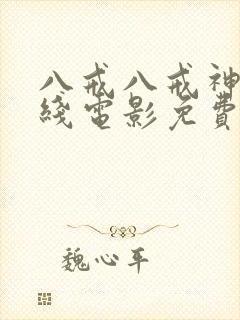 八戒八戒神
綫電影免費
魏心平